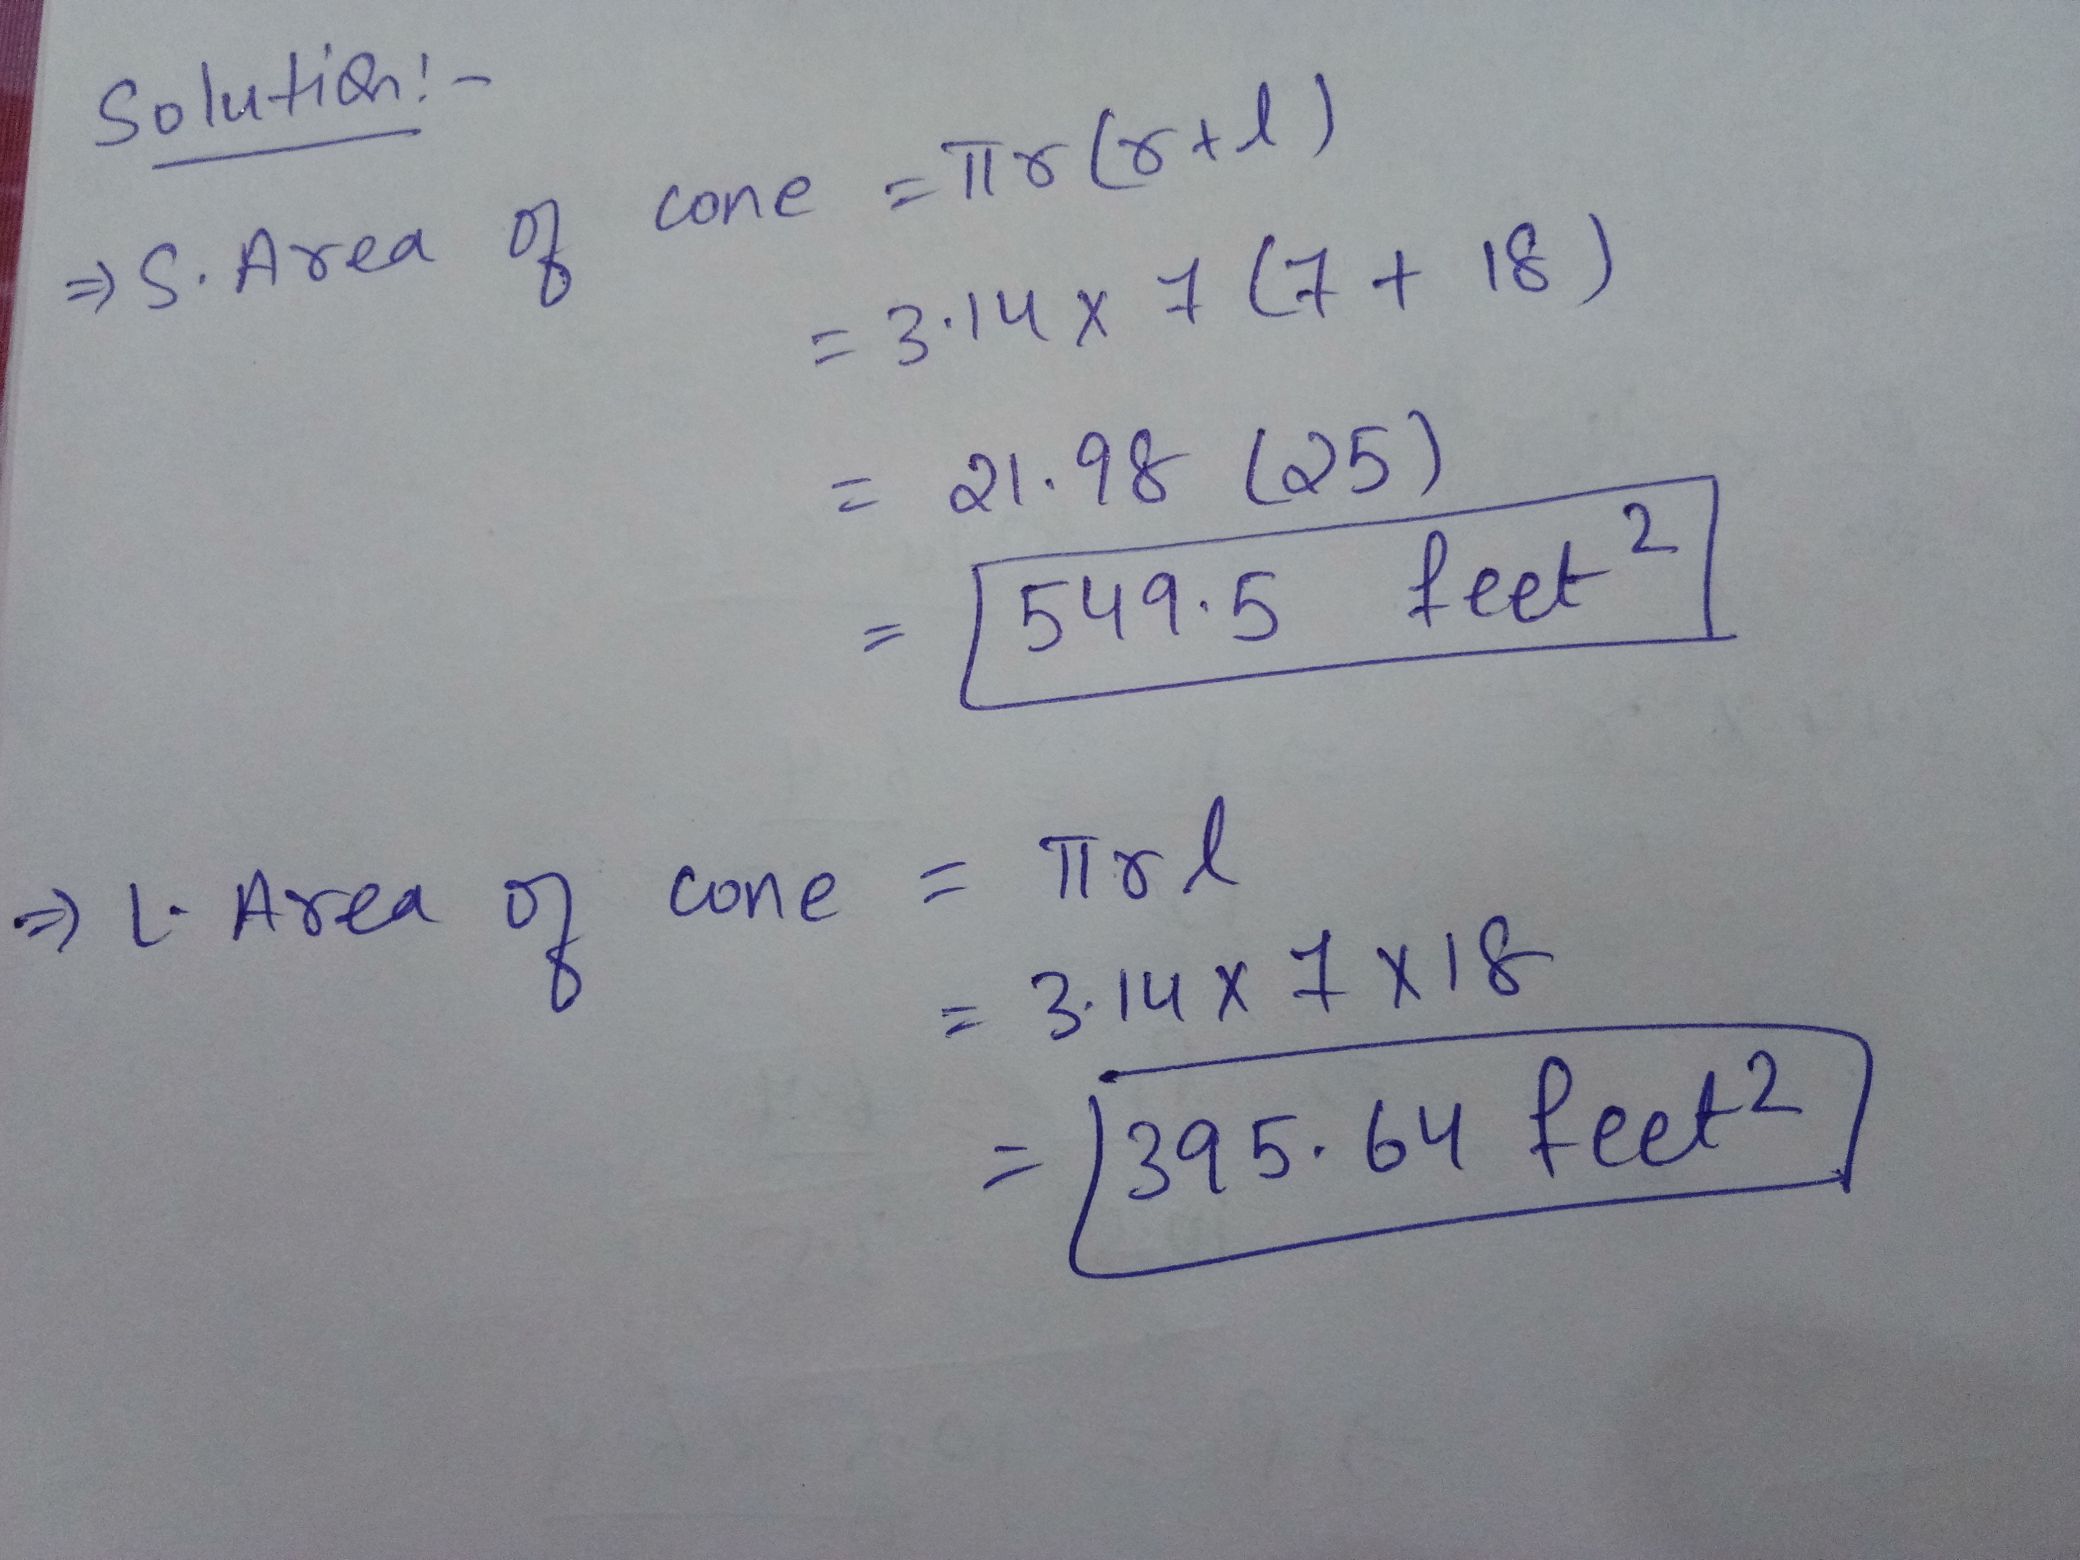 Solution:-
⇒ S. Area of cone = πr(r+l)
= 3.14 x 7 (7 + 18)
= 21.98 (25)
= 549.5 feet²
⇒ L. Area of cone = πrl
= 3.14 x 7 x 18
= 395.64 feet²